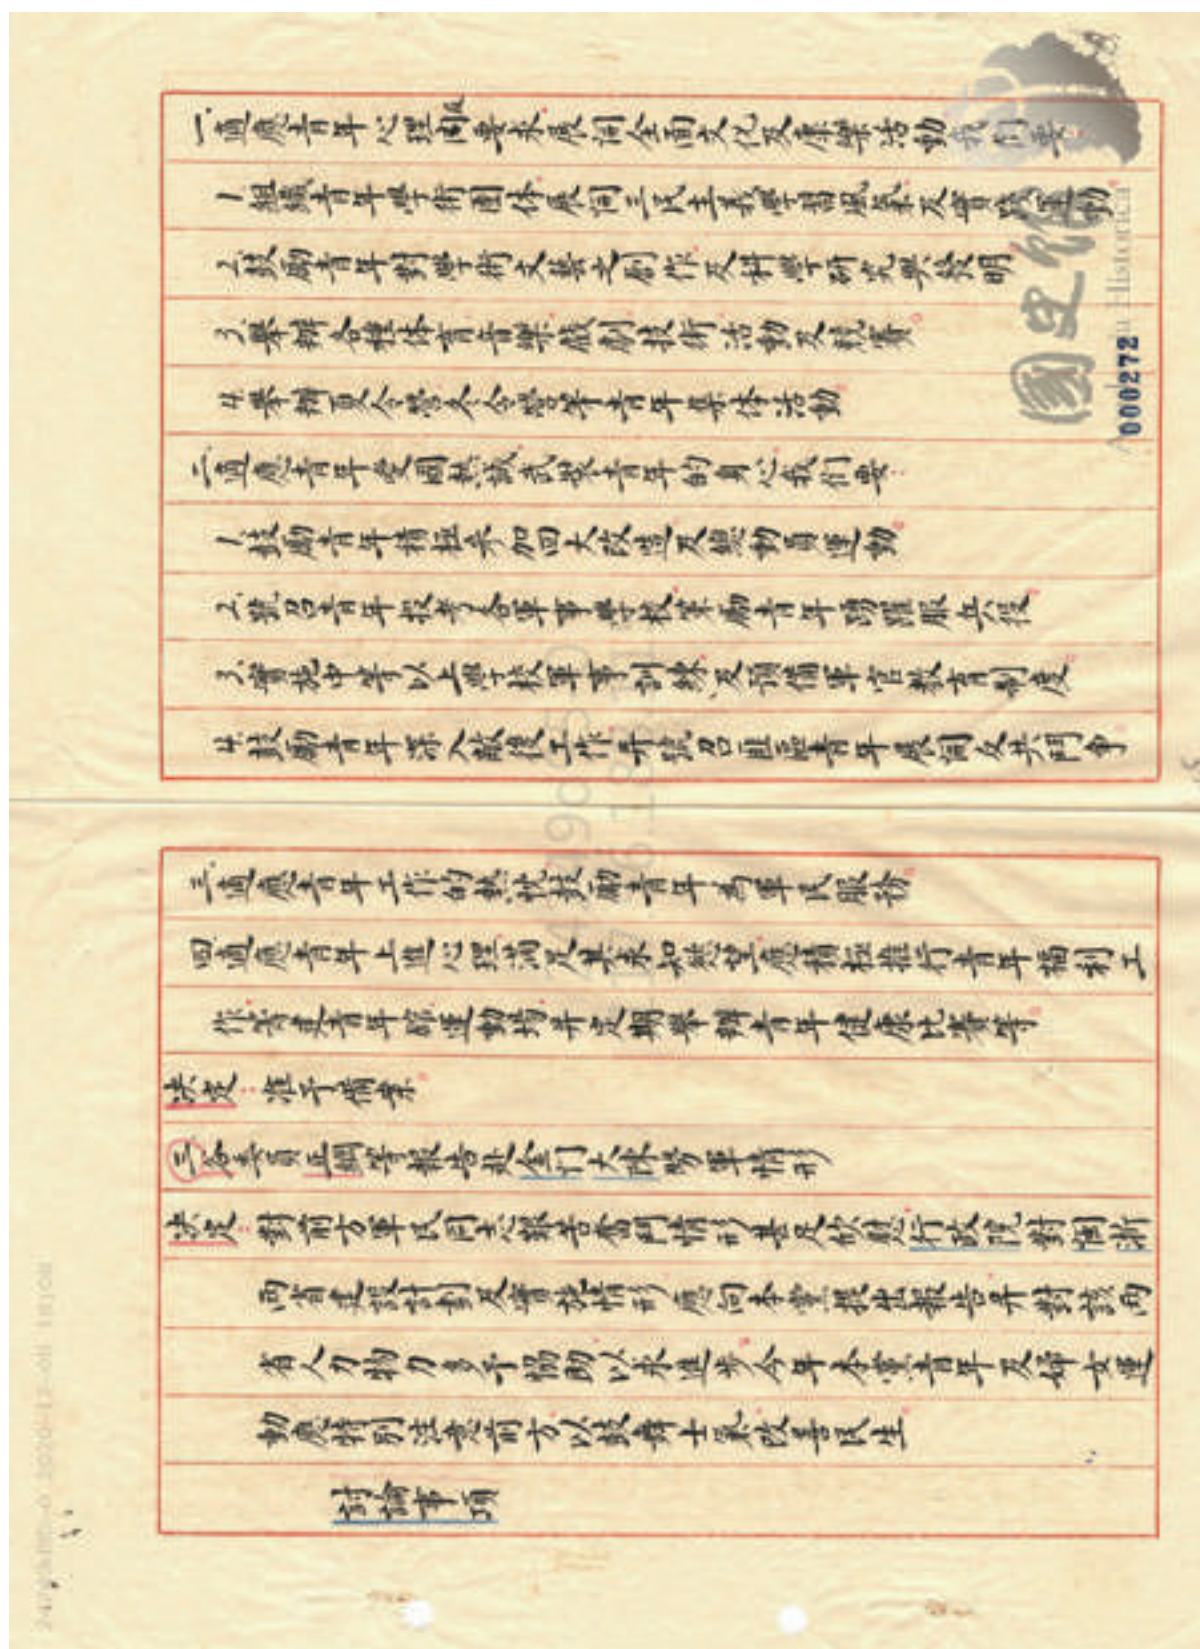 一、適應青年心理圖及要求展開全面文化及康樂活動我们要：
1.組織青年學術團体展開三民主義學習風氣及實踐運動
2.鼓勵青年對學術文藝之創作及科學研究與發明
3.舉辦各種体育音樂戲劇技術活動及競賽
4.舉辦夏令營冬令營等青年集体活動
二、適應青年愛國熱誠武裝青年的身心我们要：
1.鼓勵青年積極參加四大改造及總動員運動
2.號召青年投考各軍事學校策勵青年踴躍服兵役
3.實施中等以上學校軍事訓練及預備軍官教育制度
4.鼓勵青年深入敵後工作并號召匪區青年展開反共鬥爭
三、適應青年工作的熱忱鼓勵青年為軍民服務
四、適應青年上進心理滿足其求知慾望應積極推行青年福利工
作籌建青年館運動場并定期舉辦青年健康比賽等
決定：准予備案
三、谷委員正綱等報告赴金门大陳勞軍情形
決定：對前方軍民同志艱苦奮鬥情形甚足欣慰行政院對閩浙
兩省建設計劃及實施情形應向本黨提出報告并對該兩
省人力物力多予協助以求進步今年本黨青年及婦女運
動應特別注意前方以鼓舞士氣改善民生
討論事項
國史館
Academia Historica
000272